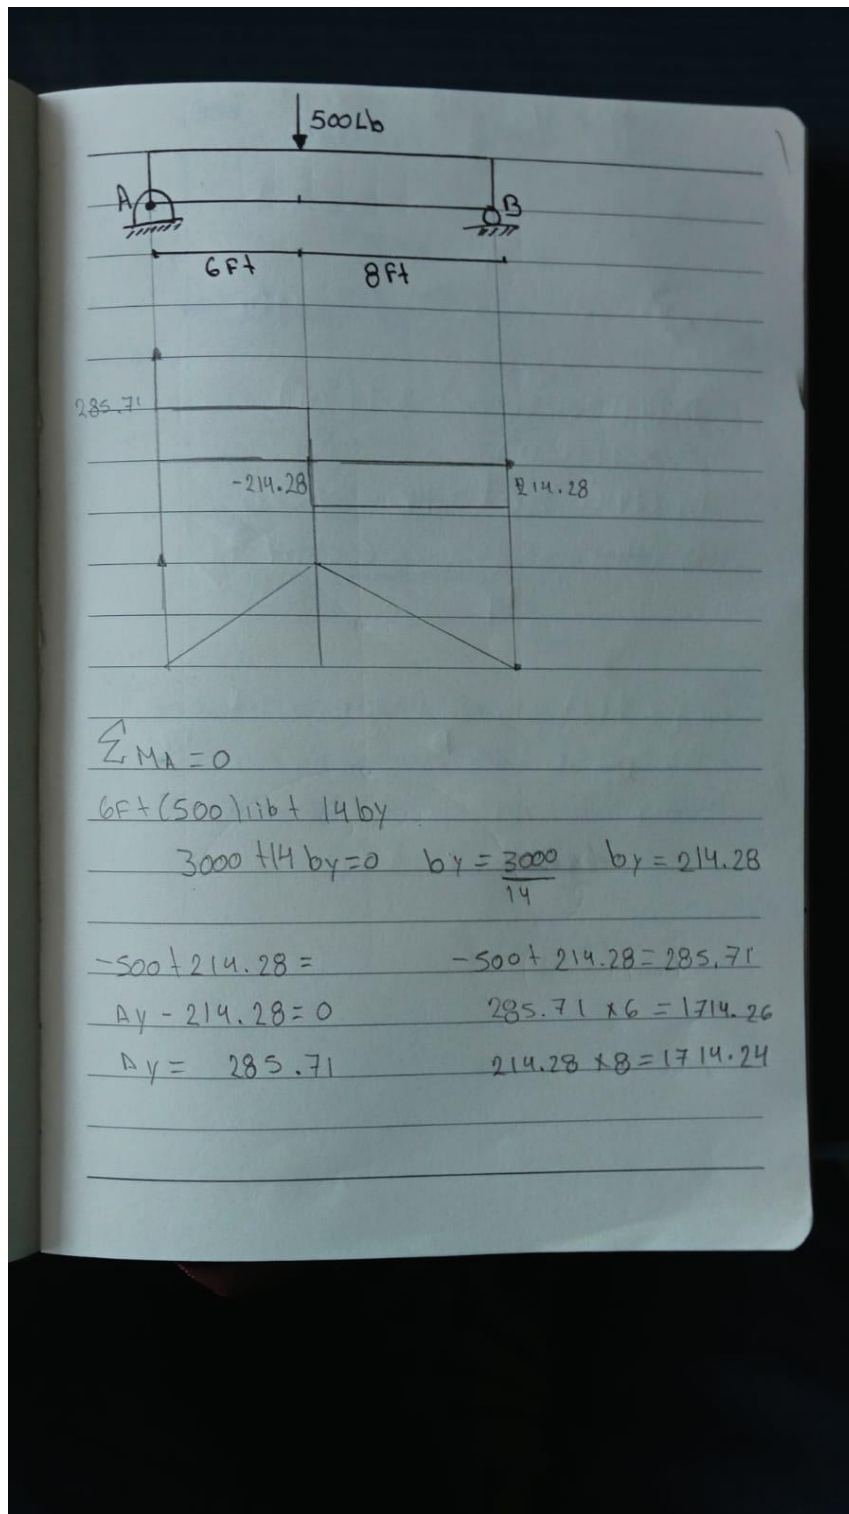 500Lb
A B
6Ft 8Ft
285.71
-214.28 214.28
∑MA=0
6Ft(500)lib+ 14by
3000+14by=0 by=3000/14 by=214.28
-500+214.28= -500+214.28=285.71
Ay-214.28=0 285.71x6=1714.26
Ay= 285.71 214.28x8=1714.24